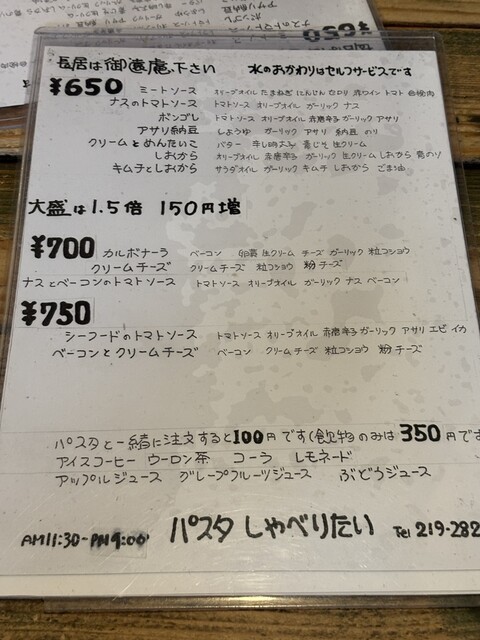 長居は御遠慮下さい 水のおかわりはセルフサービスです
¥650 ミートソース オリーブオイル たまねぎ にんじん セロリ 赤ワイン トマト 合挽肉
ナスのトマトソース トマトソース オリーブオイル ガーリック ナス
ボンゴレ トマトソース オリーブオイル 赤唐辛子 ガーリック アサリ
アサリ納豆 しょうゆ ガーリック アサリ 納豆 のり
クリームとめんたいこ バター 辛し明太子 青じそ 生クリーム
しおから オリーブオイル 赤唐辛子 ガーリック 生クリーム しおから 青のり
キムチとしおから サラダオイル ガーリック キムチ しおから ごま油
大盛は1.5倍 150円増
¥700 カルボナーラ ベーコン 卵黄 生クリーム チーズ ガーリック 粒コショウ
クリームチーズ クリームチーズ 粒コショウ 粉チーズ
ナスとベーコンのトマトソース トマトソース オリーブオイル ガーリック ナス ベーコン
¥750
シーフードのトマトソース トマトソース オリーブオイル 赤唐辛子 ガーリック アサリ エビ イカ
ベーコンとクリームチーズ ベーコン クリームチーズ 粒コショウ 粉チーズ
パスタと一緒に注文すると100円です(飲物のみは350円で
アイスコーヒー ウーロン茶 コーラ レモネード
アップルジュース グレープフルーツジュース ぶどうジュース
AM11:30~PM9:00 パスタ しゃべりたい Tel 219-282